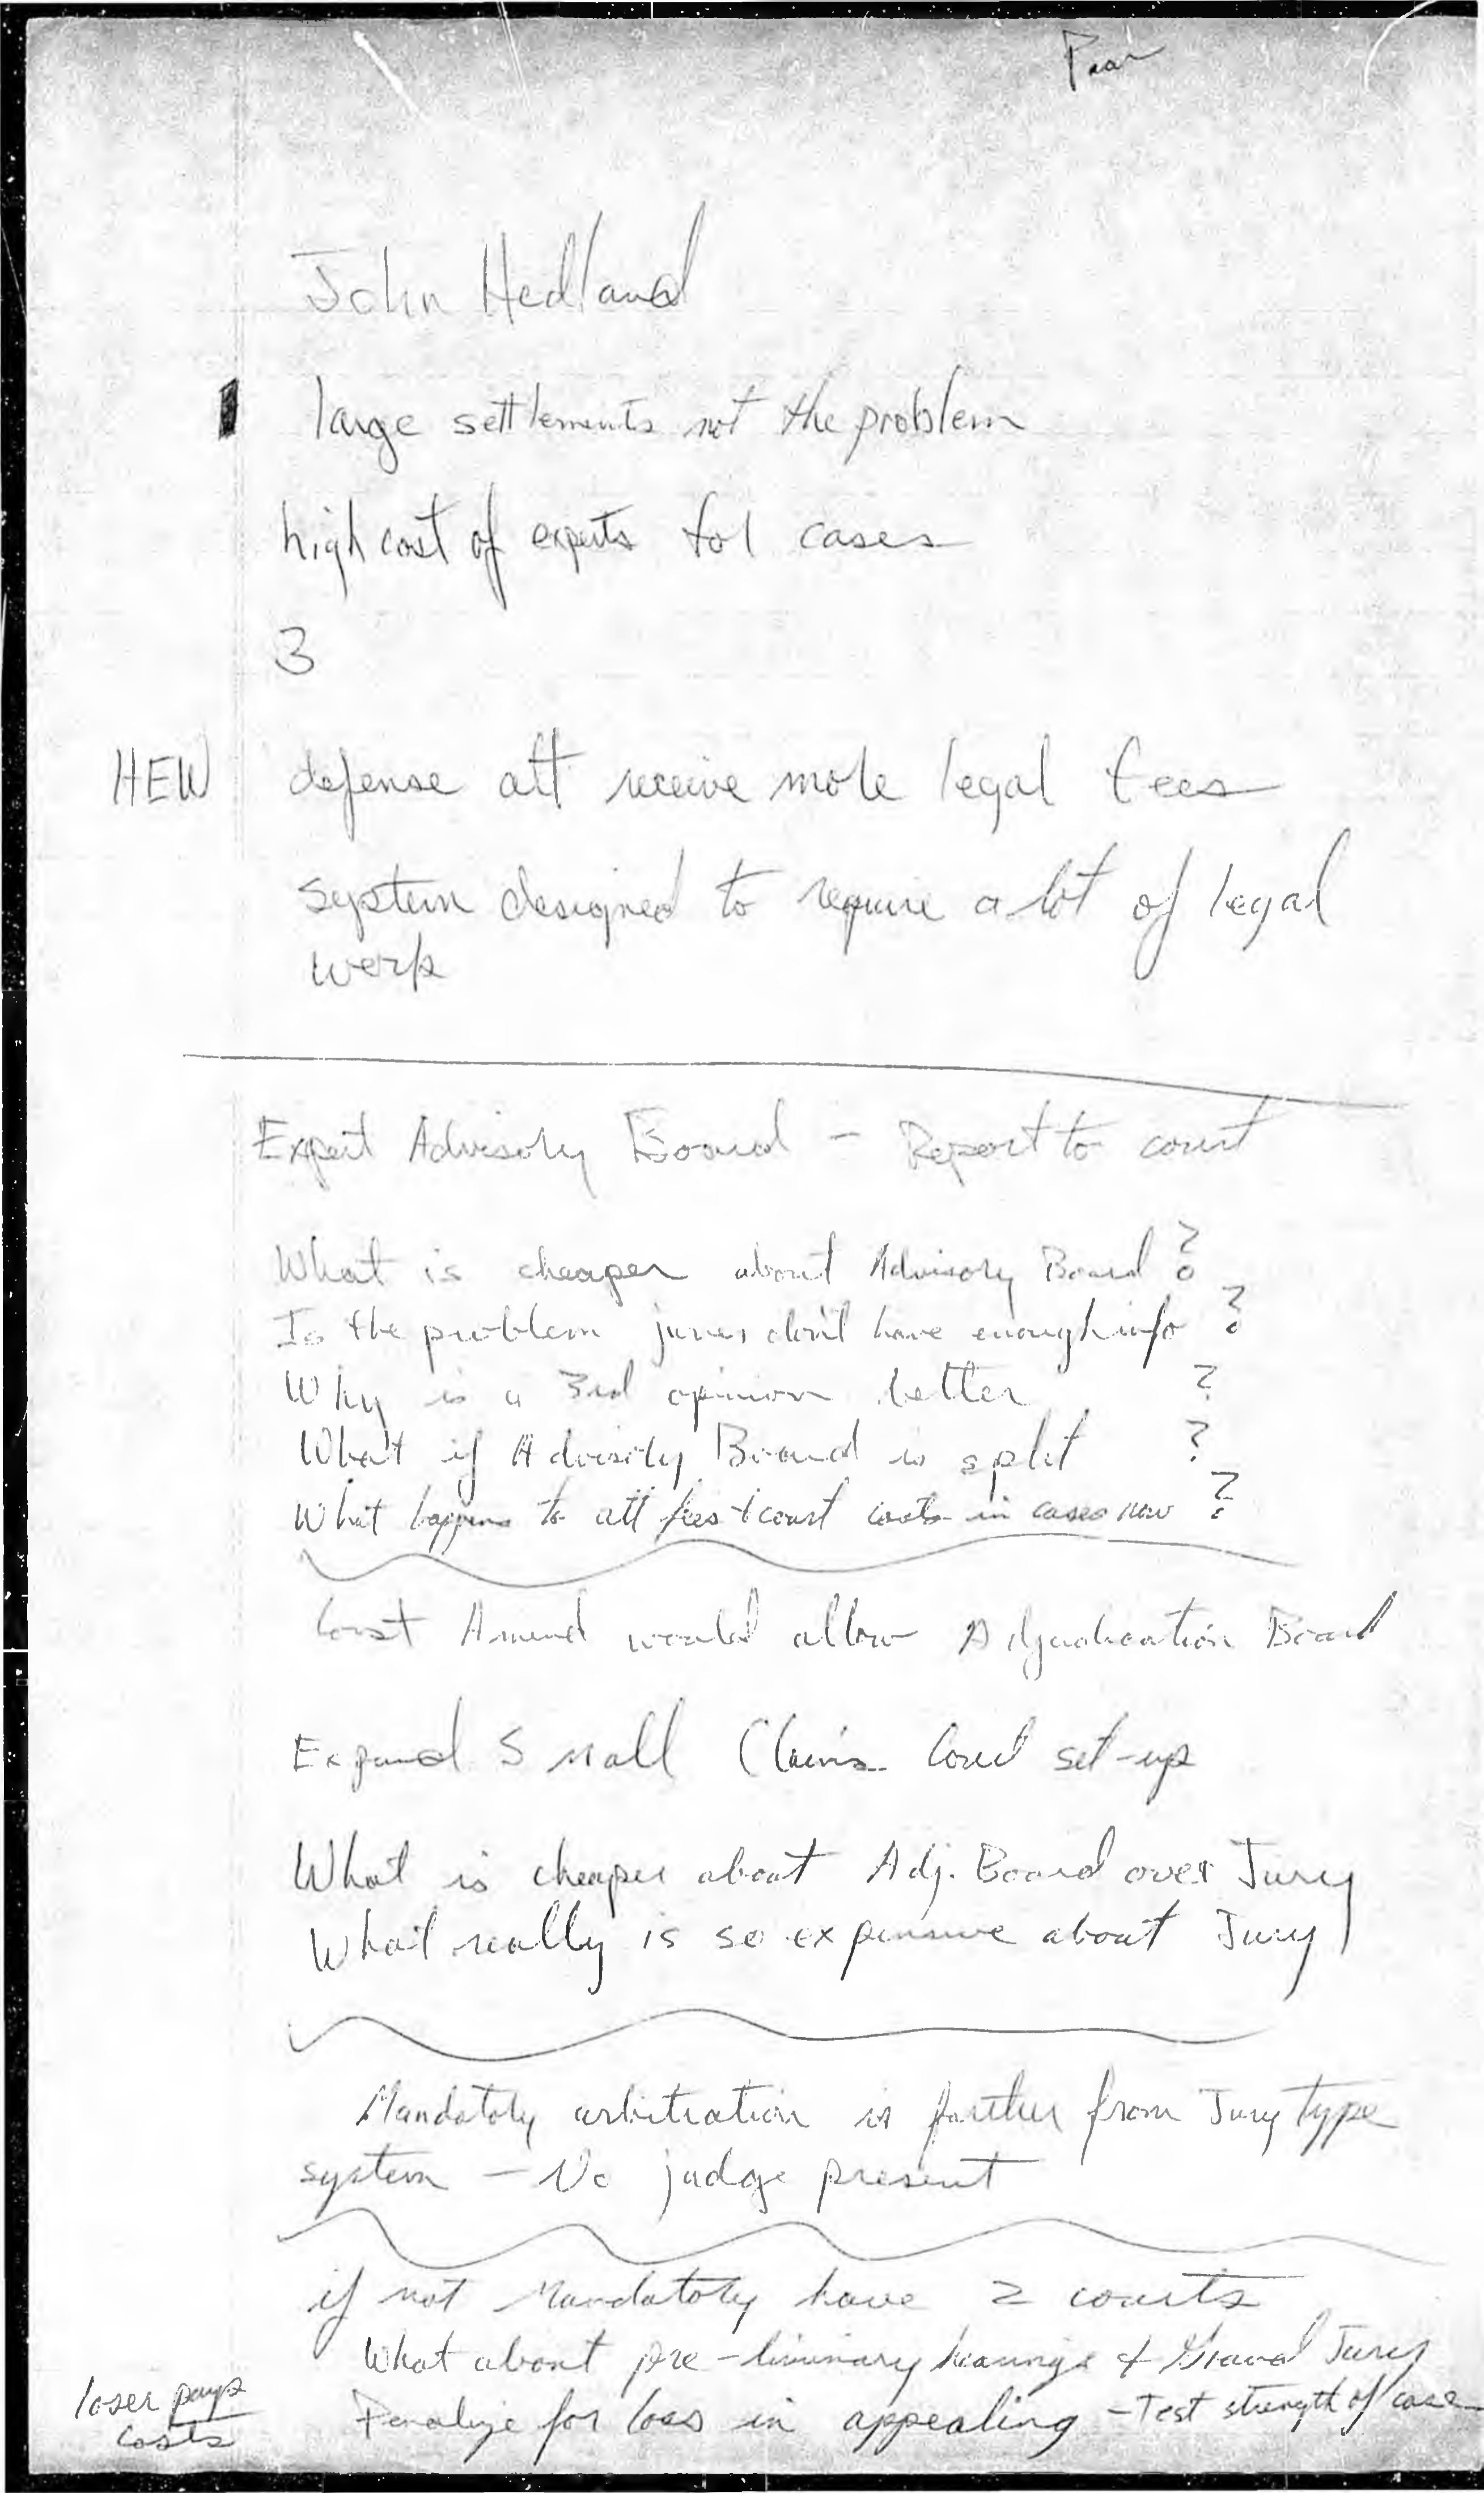 John Hedland
large settlements not the problem
high cost of experts for cases
3
HEW defense att receive more legal fees
system designed to require a lot of legal
work
Expert Advisory Board - Report to court
What is cheaper about Advisory Board ?
Is the problem juries don't have enough info ?
Why is a 3rd opinion better ?
What if Advisory Board is split ?
What happens to att fees & court costs in cases now ?
Const Amend would allow Adjudication Board
Expand Small Claims Court set-up
What is cheaper about Adj. Board over Jury
What really is so expensive about Jury
Mandatory arbitration is further from Jury type
system - No judge present
if not Mandatory have 2 courts
What about pre-liminary hearings & Grand Jury
loser pays
costs
Penalize for loss in appealing - Test strength of case